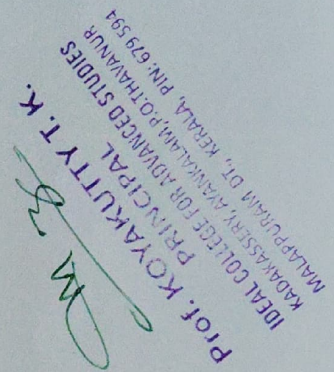 Prof. KOYAKUTTY T. K.
PRINCIPAL
IDEAL COLLEGE FOR ADVANCED STUDIES
KADAKASSERY, AYANKALAM P.O. THAVANUR
MALAPPURAM DT., KERALA, PIN: 679 594